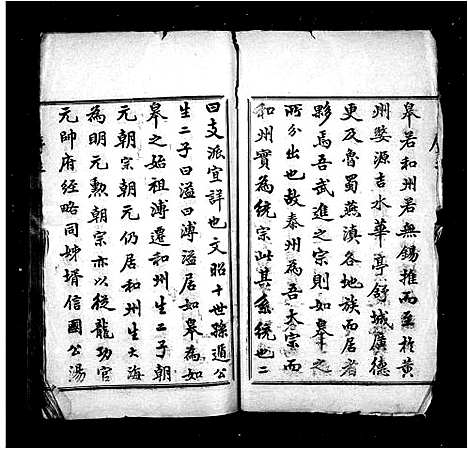 皋若和州若無錫推而至於黃
州婺源吉水華亭舒城廣德
更及魯蜀燕滇各地族而居者
夥焉吾武進之宗則如皋之
所分出也故泰州為吾大宗而
和州實為統宗此其系統也二
曰支派宜詳也文昭十世孫遁公
生二子曰溢曰溥溢居如皋為如
皋之始祖溥遷和州生二子朝
元朝宗朝元仍居和州生大海
為明元勲朝宗亦以從龍功官
元帥府經略同姊壻信國公湯